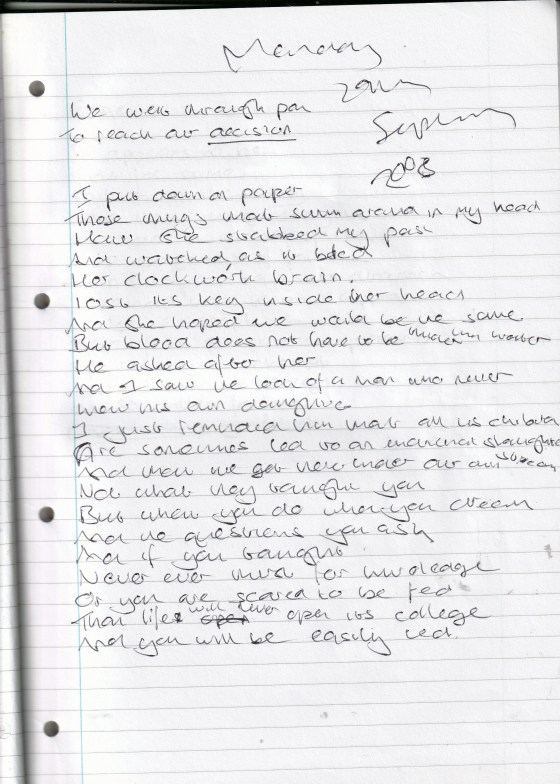 Monday
We went through pain 29th
To reach our decision September
2008
I put down on paper
Those things that swim around in my head
How she stabbed my past
And watched as it bled
Her clockwork brain.
lost its key inside her head
And she hoped we would be the same
But blood does not have to be thicker than water
He asked after her
And I saw the look of a man who never
knew his own daughter
I just reminded him that all us children
Are sometimes led to an slaughter
And then we get under our own
Not what they taught you
But what you do when you dream
And the questions you ask
And if you taught
Never ever thirst for knowledge
Or you are scared to be fed
Than life will never open its college
And you will be easily led.